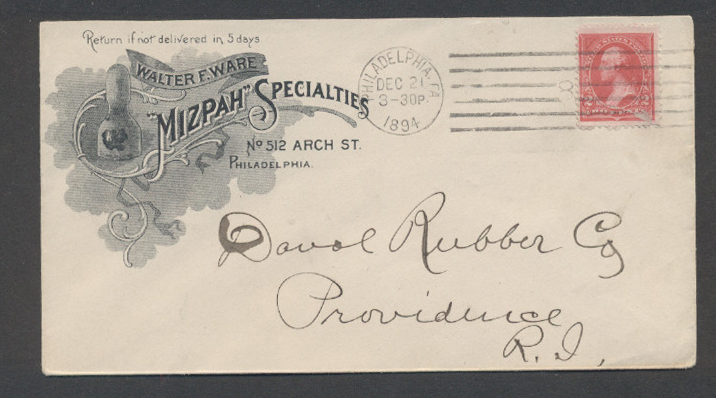 Return if not delivered in 5 days
WALTER F. WARE
"MIZPAH" SPECIALTIES
No 512 ARCH ST.
PHILADELPHIA.
PHILADELPHIA, PA
DEC 21
3-30P
1894
Davol Rubber Co
Providence
R. I,